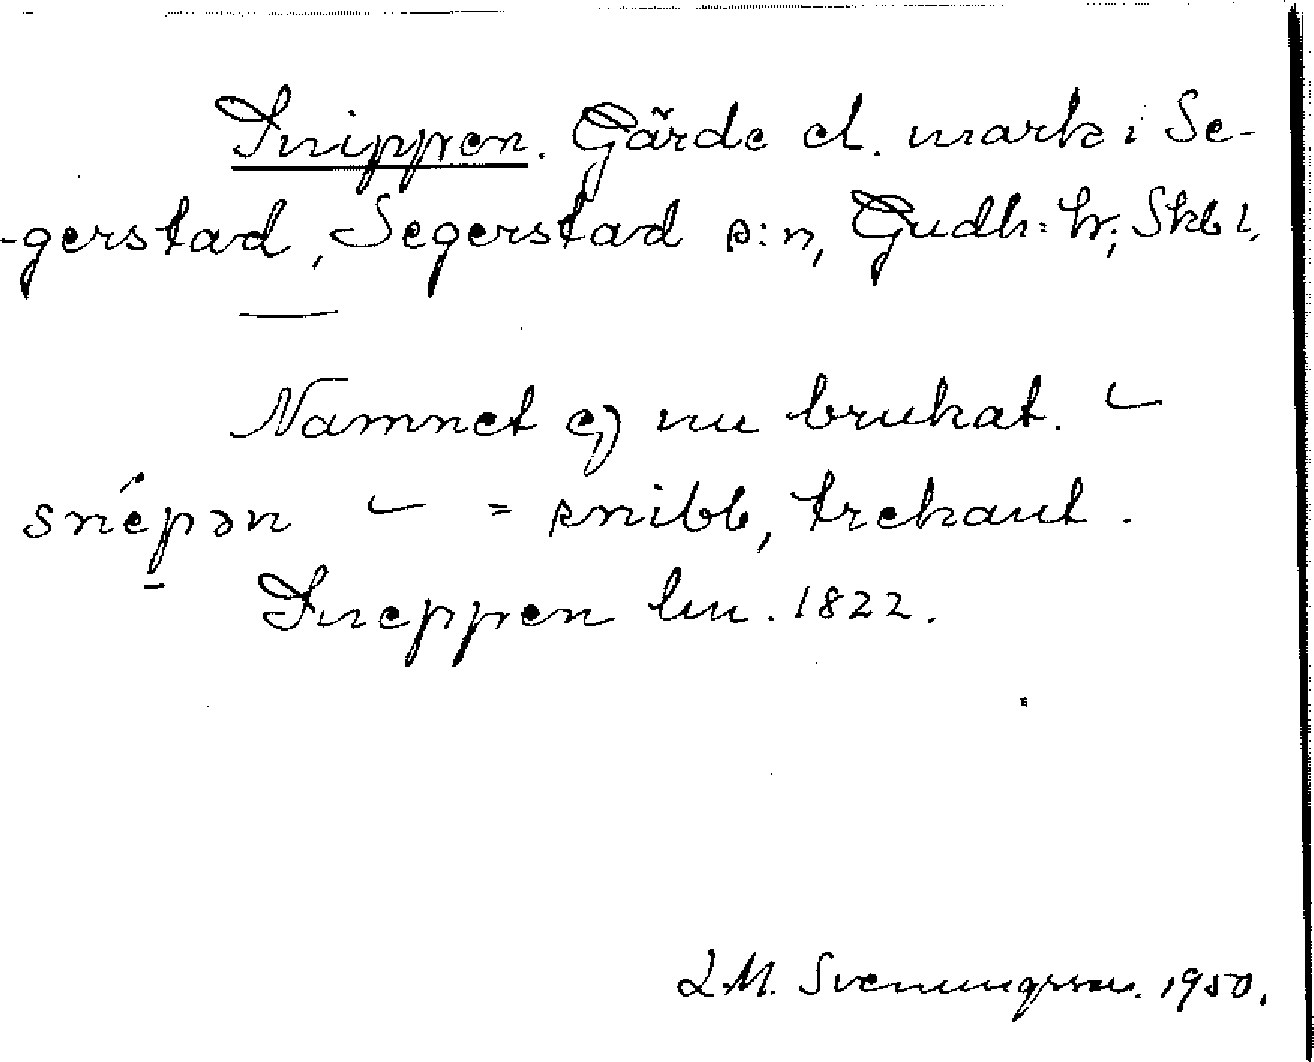 Snippen. Gärde el. mark i Se-
-gerstad, Segerstad s:n, Gudh: hr; Skbl,
Namnet ej nu brukat. –
snépən – = snibb, trekant.
Sneppen lm. 1822.
L.M. Svenungsson. 1950.